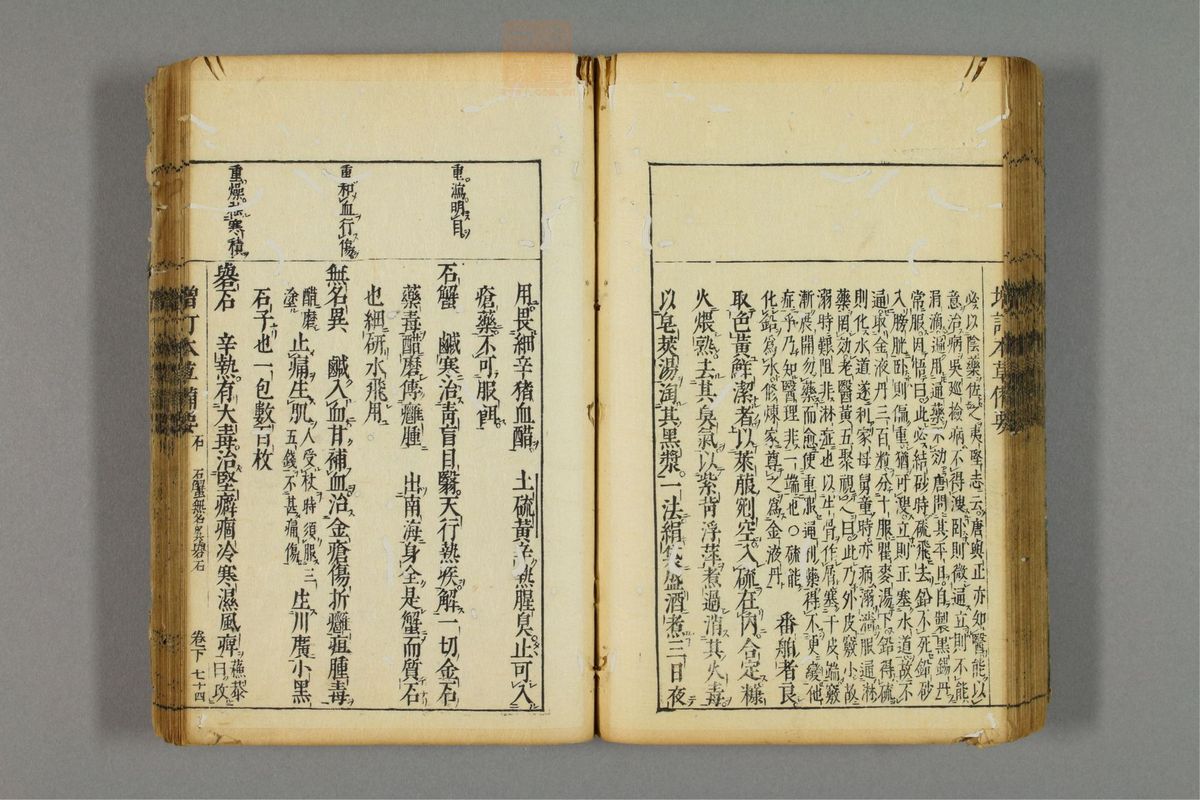 必以陰藥佐之夷堅志云唐與正亦知醫能以
意治病吳巡檢病不得溲臥則微通立則不能
涓滴遍用通藥不効唐問其平日自製黑錫丹
常服因悟曰此必結砂時硫飛去鉛不死鉛砂
入膀胱臥則偏重猶可溲立則正塞水道故不
通取金液丹三百粒分十服瞿麥湯下鉛得硫
則化水道遂利家母舅童時亦病溺澁服通淋
藥罔効老醫黃五聚視之曰此乃外皮竅小故
溺時艱阻非淋症也以牛骨作屑塞于皮端竅
漸展開勿藥而愈使重服通利藥得不更變他
症乎乃知醫理非一端也○硫能
化鉛爲水修煉家尊之爲金液丹
番舶者良
取色黃鮮潔者以萊菔剜空入硫在內合定糠
火煨熟去其臭氣以紫背浮萍煮過消其火毒
以皂莢湯淘其黑漿一法絹袋盛酒煮三日夜
用畏細辛猪血醋
土硫黃辛熱腥臭止可入
瘡藥不可服餌
重瀉明目
石蟹
鹹寒治青盲目翳天行熱疾解一切金石
藥毒醋磨傅癰腫
出南海身全是蟹而質石
也細研水飛用
重和血行傷
無名異
鹹入血甘補血治金瘡傷折癰疽腫毒
醋磨塗
止痛生肌
人受杖時須服三五錢不甚痛傷
生川廣小黑
石子也一包數百枚
重燥寒積
礜石
辛熱有大毒治堅癖痼冷寒濕風痺
蘇恭曰攻
增訂本草備要
石
石蟹無名異礜石
卷下
七十四